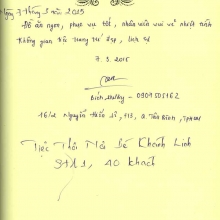 Ngày 7 Tháng 3 năm 2015
Đồ ăn ngon, phục vụ tốt, nhân viên vui vẻ nhiệt tình
Không gian tiệc trang trí đẹp, lịch sự
7. 3. 2015
Bích - 0909505162
16/2 Nguyễn Thái, P13, Q Tân Bình, TPHCM
Tiệc Thôi Nôi bé Khánh Linh
SH1, 40 khách